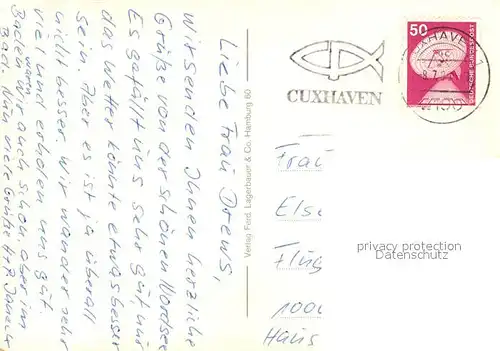 Liebe Frau Drews,
Wir senden Ihnen herzliche
Grüße von der schönen Nordsee
Es gefällt uns sehr gut nur
das Wetter könnte etwas besser
sein. Aber es ist ja überall
nicht besser. Wir wandern sehr
viel und erholen uns gut.
Baden waren wir auch schon, aber im
Bad. Nun viele Grüße
Verlag Ferd. Lagerbauer & Co. Hamburg 60
CUXHAVEN
50
DEUTSCHE BUNDESPOST
Frau
Else
Flug
1000
Haus
privacy protection
Datenschutz